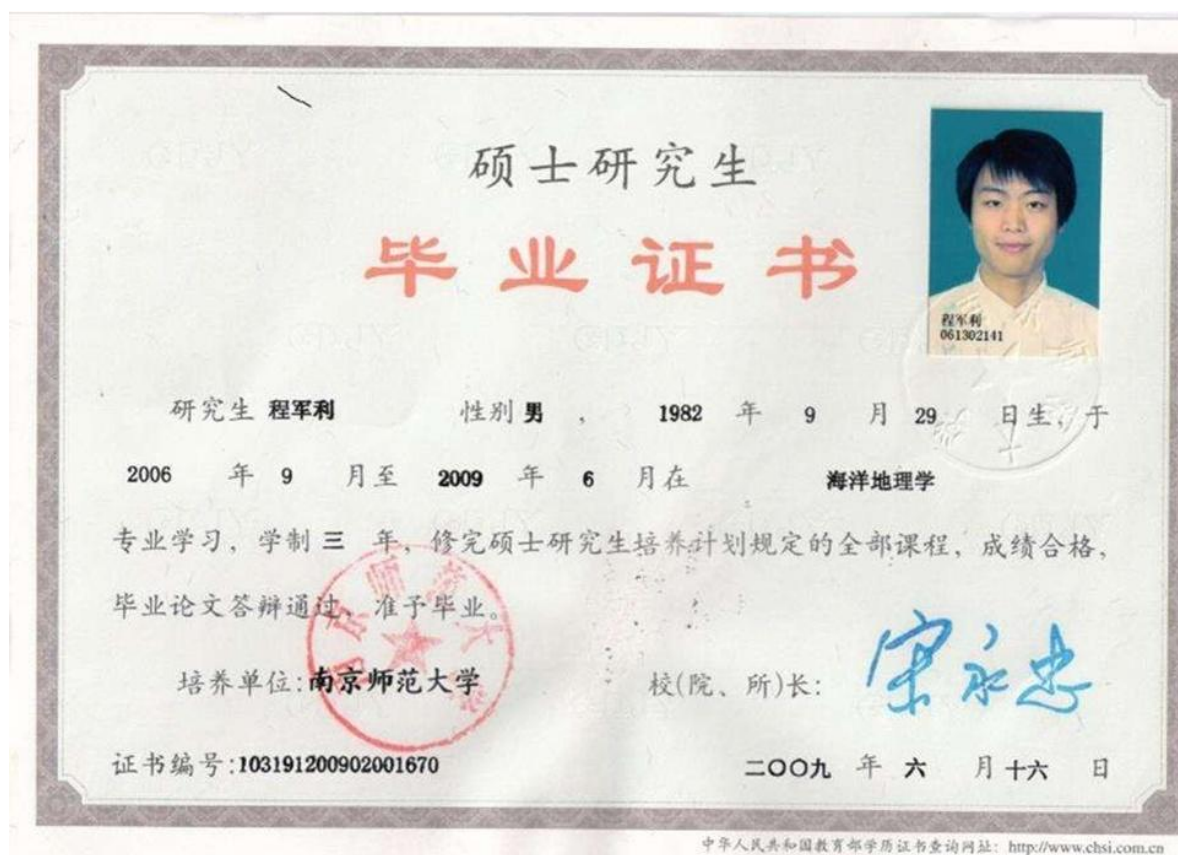 硕士研究生
毕业证书
程军利
061302141
研究生 程军利 性别 男 , 1982 年 9 月 29 日生, 于
2006 年 9 月至 2009 年 6 月在 海洋地理学
专业学习, 学制 三 年, 修完硕士研究生培养计划规定的全部课程, 成绩合格,
毕业论文答辩通过, 准予毕业。
培养单位:南京师范大学 校(院、所)长: 宋永忠
南京师范大学
证书编号:103191200902001670 二〇〇九 年 六 月 十六 日
中华人民共和国教育部学历证书查询网址: http://www.chsi.com.cn